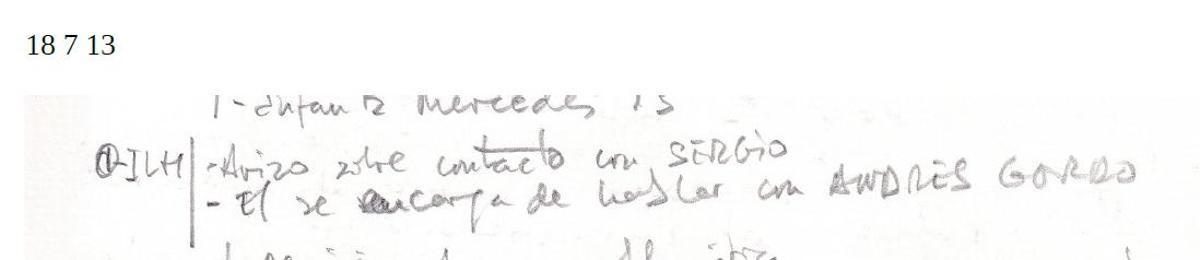 18 7 13
1- Infanta Mercedes 15
①-ILH -Avizo sobre contacto con SERGIO
- El se encarga de hablar con ANDRES GORDO